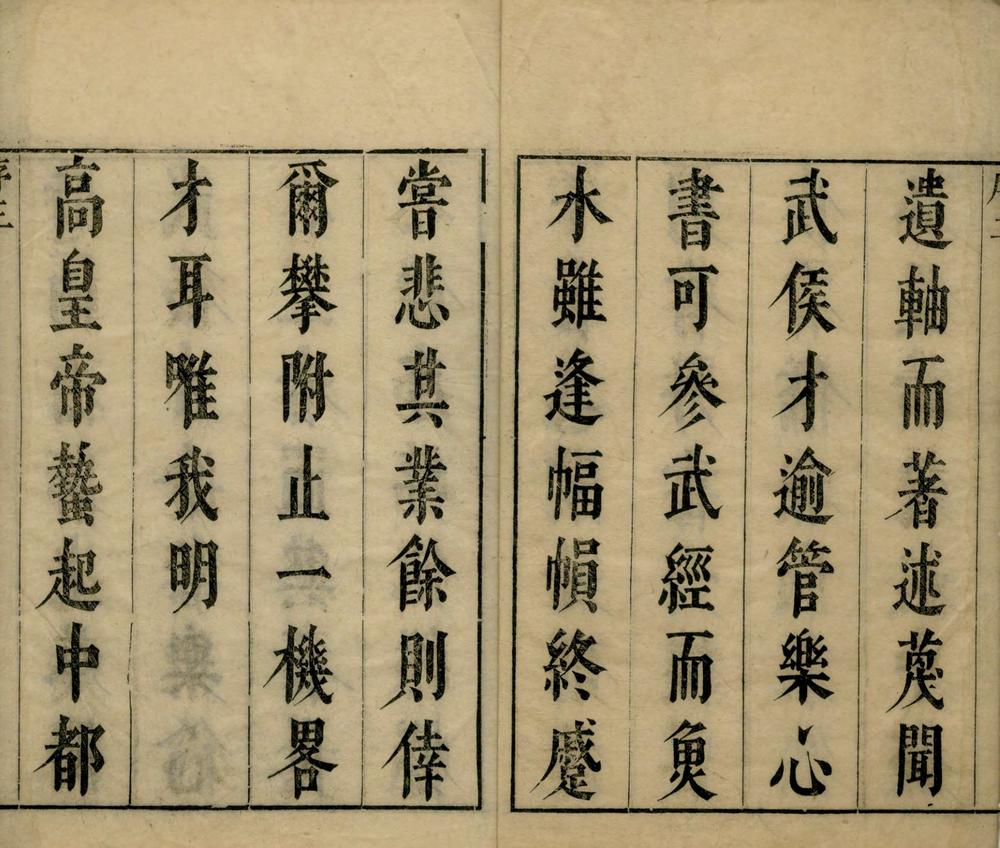 遺軸而著述蔑聞
武侯才逾管樂心
書可參武經而魚
水雖逢幅幀終蹙
嘗悲其業餘則倖
爾攀附止一機畧
才耳唯我明
高皇帝蟄起中都